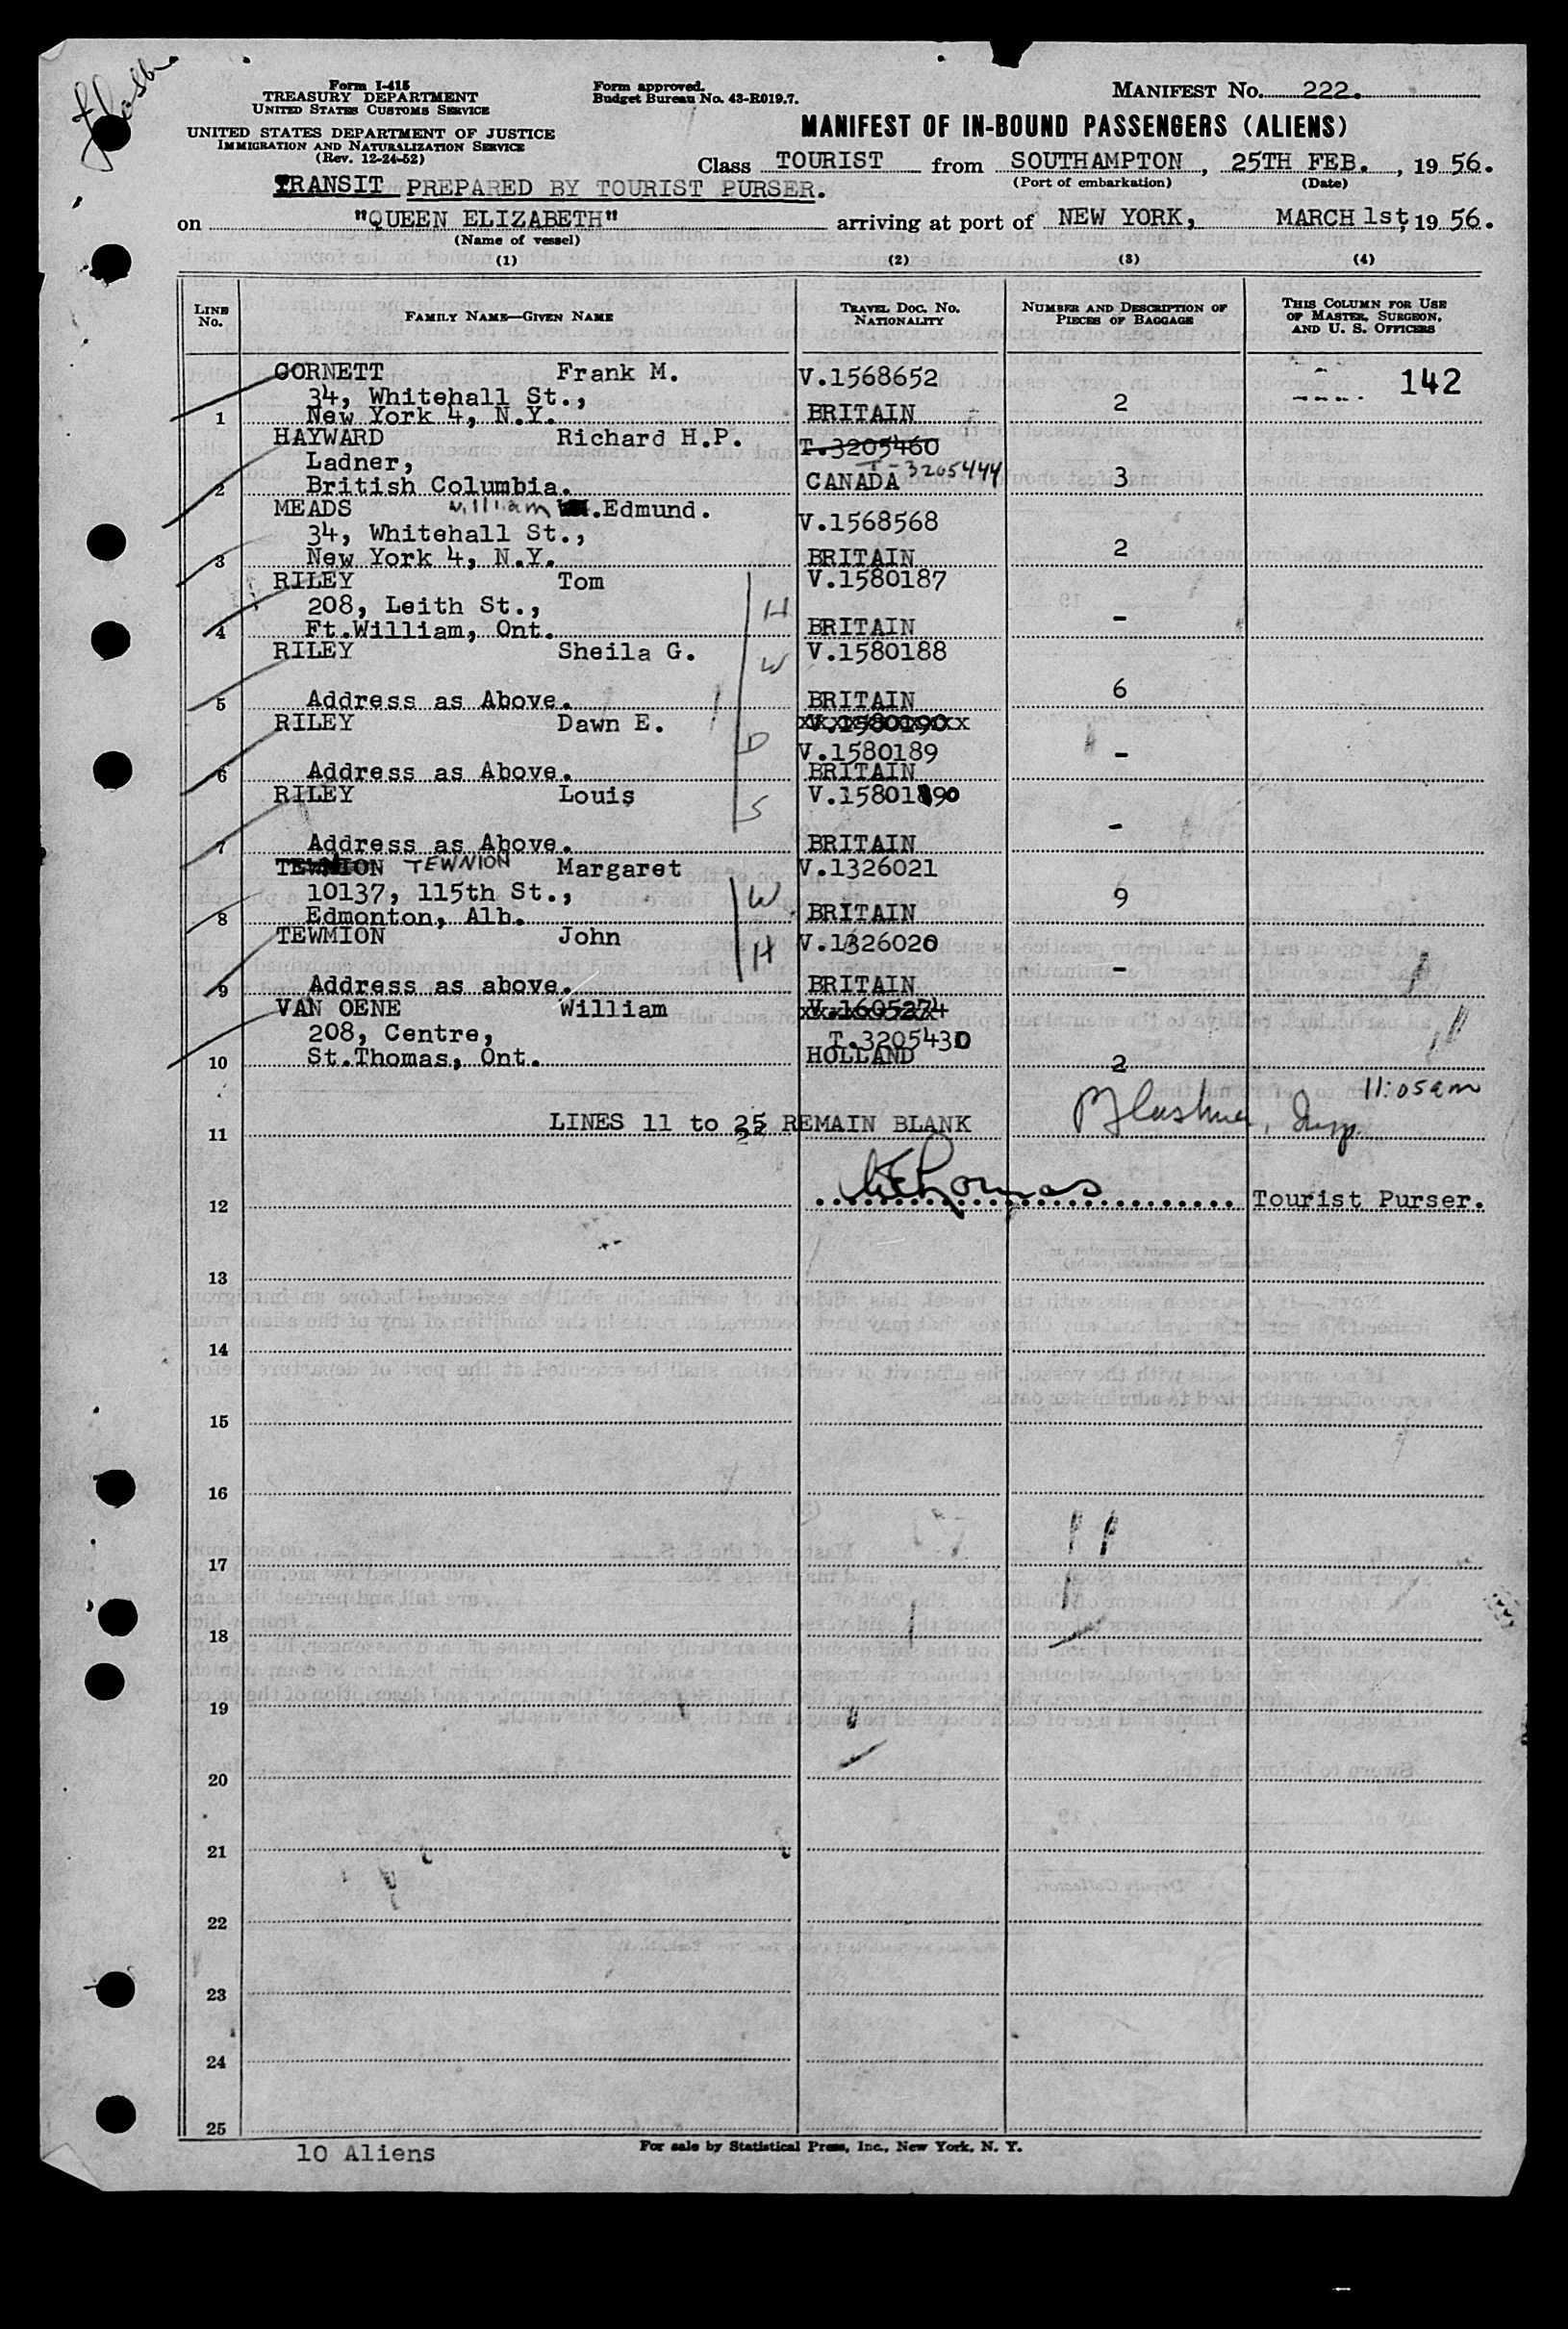 Form I-415
TREASURY DEPARTMENT
UNITED STATES CUSTOMS SERVICE
UNITED STATES DEPARTMENT OF JUSTICE
IMMIGRATION AND NATURALIZATION SERVICE
(Rev. 12-24-52)
Form approved.
Budget Bureau No. 43-R019.7.
MANIFEST NO. 222.
MANIFEST OF IN-BOUND PASSENGERS (ALIENS)
Class TOURIST from SOUTHAMPTON, 25TH FEB., 1956.
(Port of embarkation) (Date)
TRANSIT PREPARED BY TOURIST PURSER.
on "QUEEN ELIZABETH" arriving at port of NEW YORK, MARCH 1st, 1956.
(Name of vessel)
(1) (2) (3) (4)
LINE NO. FAMILY NAME—GIVEN NAME TRAVEL DOC. NO. NATIONALITY NUMBER AND DESCRIPTION OF PIECES OF BAGGAGE THIS COLUMN FOR USE OF MASTER, SURGEON, AND U. S. OFFICERS
CORNETT Frank M. V.1568652 142
34, Whitehall St., 2
1 New York 4, N.Y. BRITAIN
HAYWARD Richard H.P. T.3205460
Ladner, T-3205444
2 British Columbia. CANADA 3
MEADS William .Edmund. V.1568568
34, Whitehall St.,
3 New York 4, N.Y. BRITAIN 2
RILEY Tom V.1580187
208, Leith St., H
4 Ft.William, Ont. BRITAIN -
RILEY Sheila G. W V.1580188
5 Address as Above. BRITAIN 6
RILEY Dawn E. V.1580190
D V.1580189 -
6 Address as Above. BRITAIN
RILEY Louis S V.1580190
7 Address as Above. BRITAIN -
TEWMION TEWNION Margaret V.1326021
10137, 115th St., W 9
8 Edmonton, Alb. BRITAIN
TEWMION John H V.1326020
9 Address as above. BRITAIN -
VAN OENE William V.1605274
208, Centre, T.3205430
10 St.Thomas, Ont. HOLLAND 2
11:05am
11 LINES 11 to 25 REMAIN BLANK
12 Tourist Purser.
13
14
15
16
17
18
19
20
21
22
23
24
25
10 Aliens
For sale by Statistical Press, Inc., New York, N. Y.